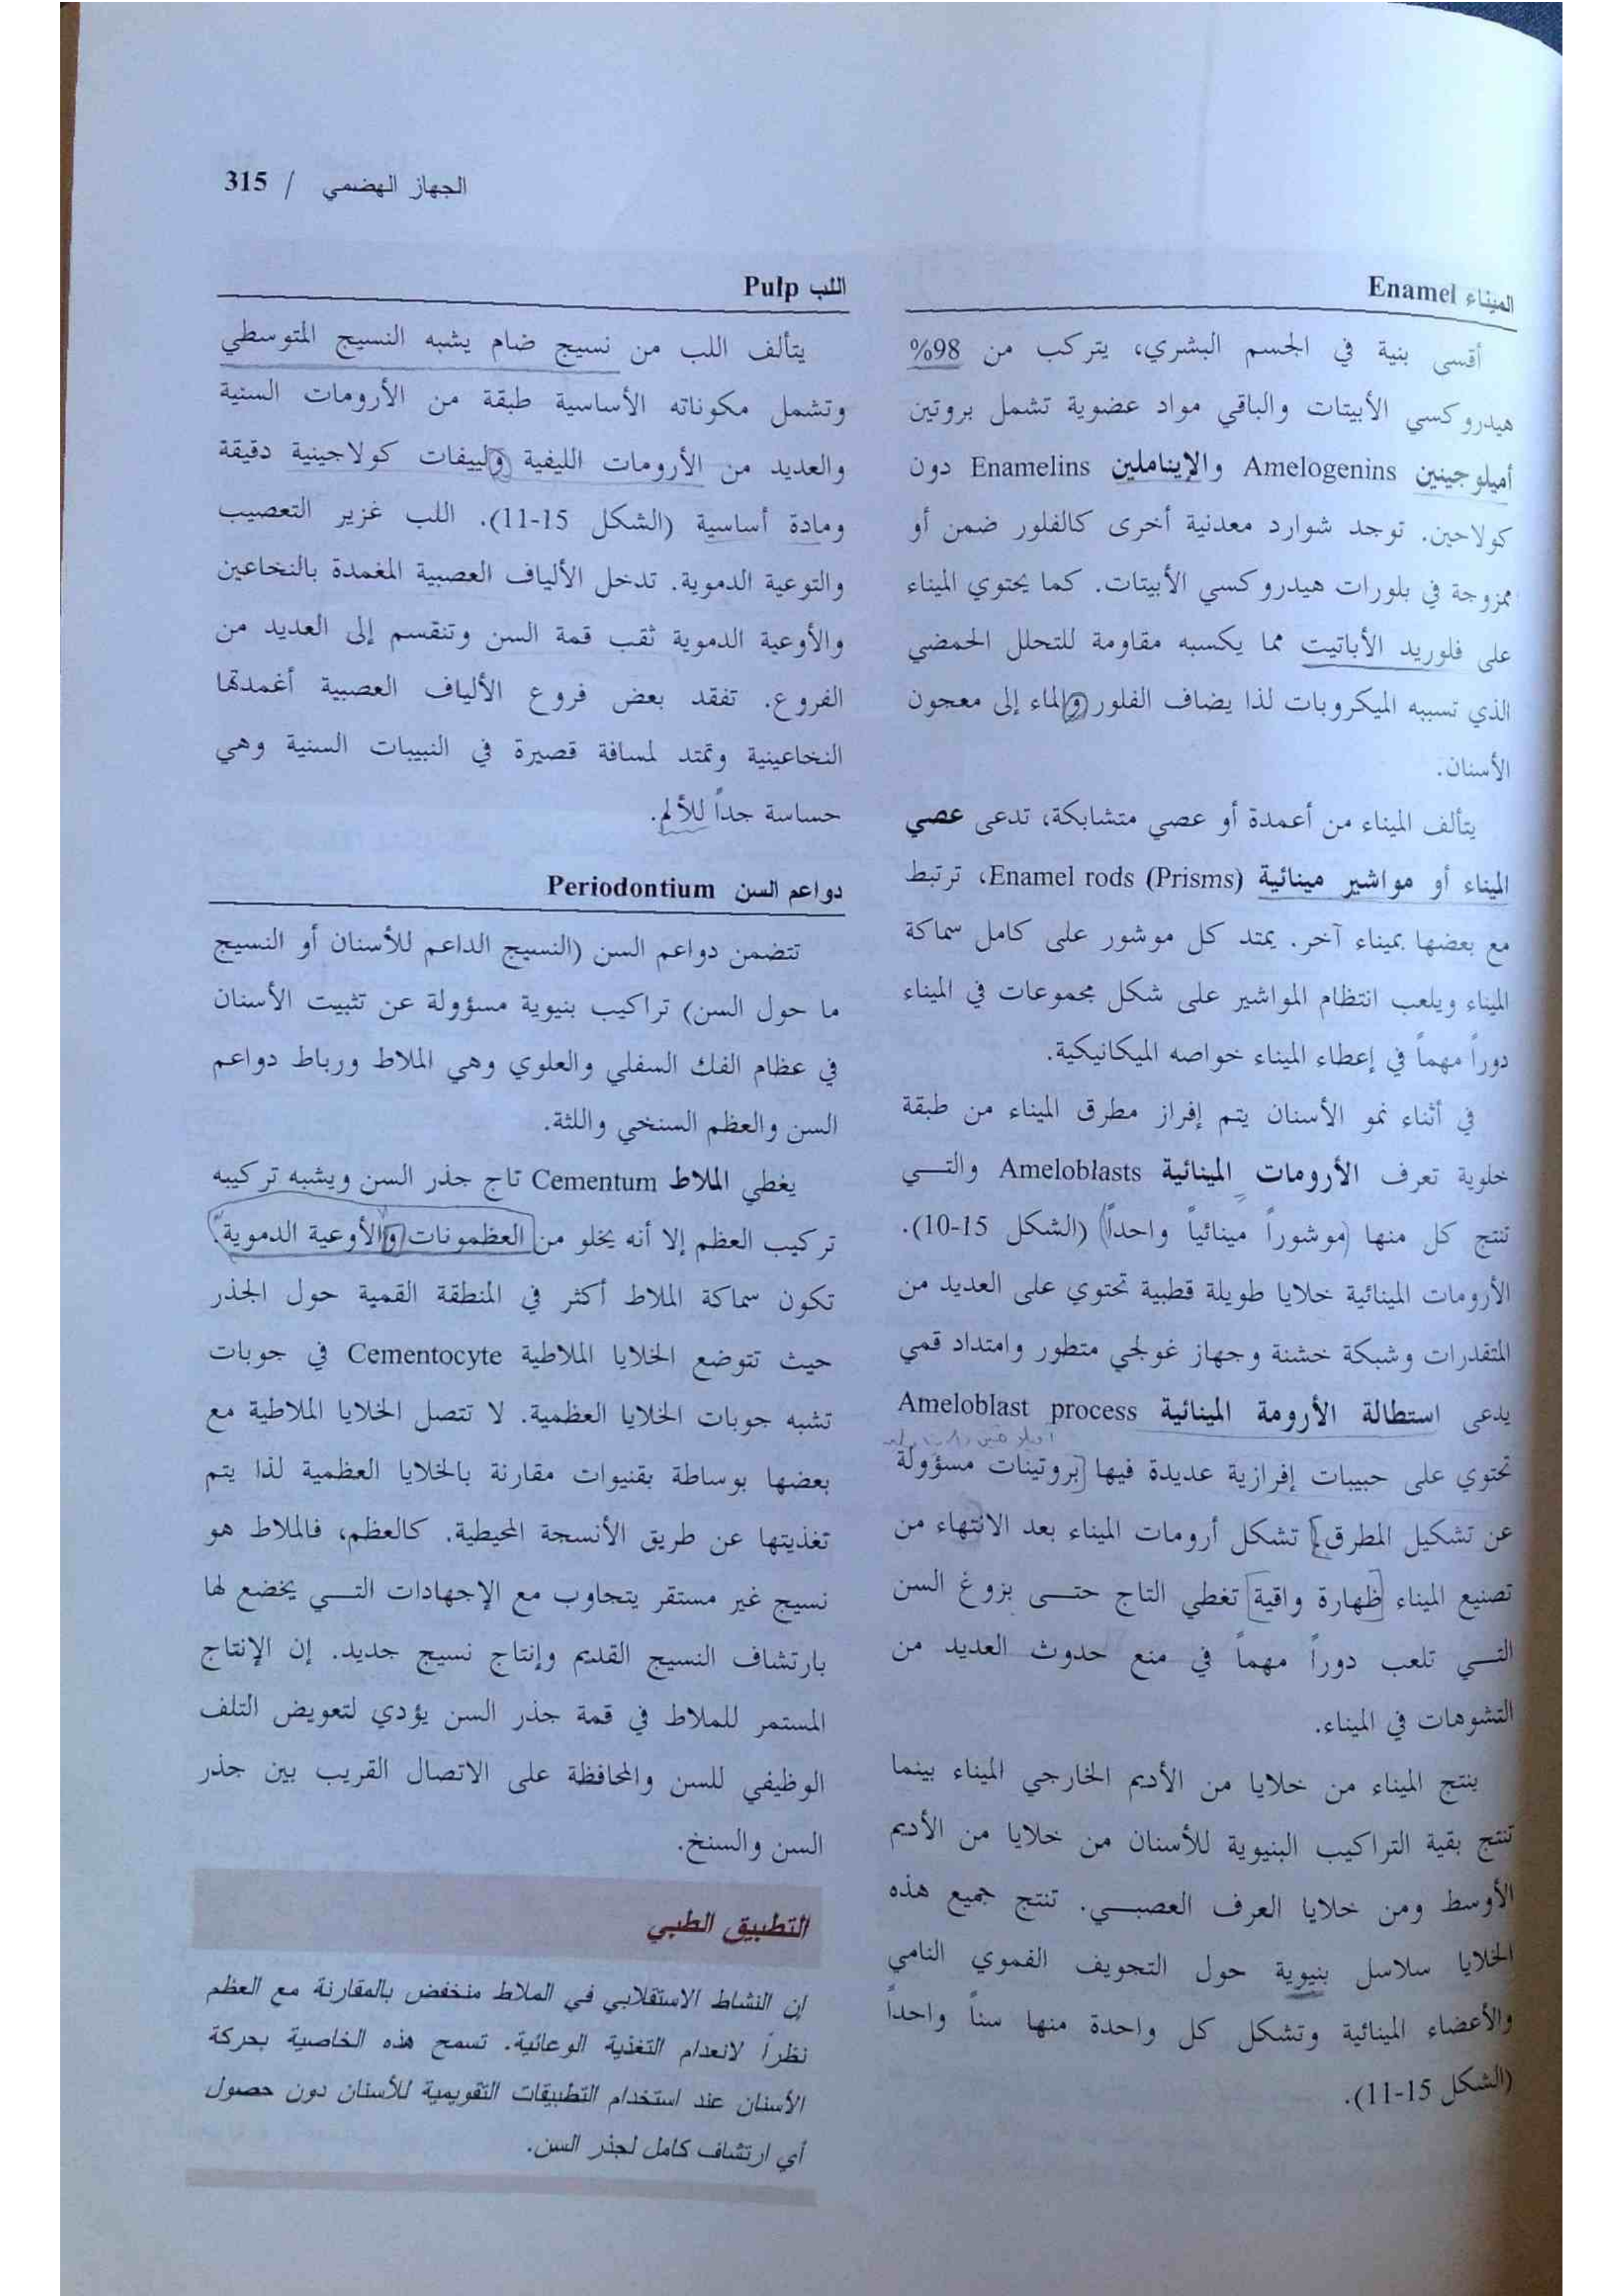 الجهاز الهضمي / 315
الميناء Enamel
أقسى بنية في الجسم البشري، يتركب من 98%
هيدروكسي الأبيتات والباقي مواد عضوية تشمل بروتين
أميلوجينين Amelogenins والإيناملين Enamelins دون
كولاجين. توجد شوارد معدنية أخرى كالفلور ضمن أو
ممزوجة في بلورات هيدروكسي الأبيتات. كما يحتوي الميناء
على فلوريد الأباتيت مما يكسبه مقاومة للتحلل الحمضي
الذي تسببه الميكروبات لذا يضاف الفلور والماء إلى معجون
الأسنان.
يتألف الميناء من أعمدة أو عصي متشابكة، تدعى عصي
الميناء أو مواشير مينائية Enamel rods (Prisms)، ترتبط
مع بعضها بميناء آخر. يمتد كل موشور على كامل سماكة
الميناء ويلعب انتظام المواشير على شكل مجموعات في الميناء
دوراً مهماً في إعطاء الميناء خواصه الميكانيكية.
في أثناء نمو الأسنان يتم إفراز مطرق الميناء من طبقة
خلوية تعرف الأرومات المينائية Ameloblasts والتـــي
تنتج كل منها موشوراً مينائياً واحداً (الشكل 15-10).
الأرومات المينائية خلايا طويلة قطبية تحتوي على العديد من
المتقدرات وشبكة خشنة وجهاز غولجي متطور وامتداد قمي
يدعى استطالة الأرومة المينائية Ameloblast process
تحتوي على حبيبات إفرازية عديدة فيها بروتينات مسؤولة
عن تشكيل المطرق. تشكل أرومات الميناء بعد الانتهاء من
تصنيع الميناء ظهارة واقية تغطي التاج حتـــى بزوغ السن
التـــي تلعب دوراً مهماً في منع حدوث العديد من
التشوهات في الميناء.
ينتج الميناء من خلايا من الأديم الخارجي الميناء بينما
تنتج بقية التراكيب البنيوية للأسنان من خلايا من الأديم
الأوسط ومن خلايا العرف العصبـــي. تنتج جميع هذه
الخلايا سلاسل بنيوية حول التجويف الفموي النامي
والأعضاء المينائية وتشكل كل واحدة منها سناً واحداً
(الشكل 15-11).
اللب Pulp
يتألف اللب من نسيج ضام يشبه النسيج المتوسطي
وتشمل مكوناته الأساسية طبقة من الأرومات السنية
والعديد من الأرومات الليفية ولييفات كولاجينية دقيقة
ومادة أساسية (الشكل 15-11). اللب غزير التعصيب
والتوعية الدموية. تدخل الألياف العصبية المغمدة بالنخاعين
والأوعية الدموية ثقب قمة السن وتنقسم إلى العديد من
الفروع. تفقد بعض فروع الألياف العصبية أغمدتها
النخاعينية وتمتد لمسافة قصيرة في النبيبات السنية وهي
حساسة جداً للألم.
دواعم السن Periodontium
تتضمن دواعم السن (النسيج الداعم للأسنان أو النسيج
ما حول السن) تراكيب بنيوية مسؤولة عن تثبيت الأسنان
في عظام الفك السفلي والعلوي وهي الملاط ورباط دواعم
السن والعظم السنخي واللثة.
يغطي الملاط Cementum تاج جذر السن ويشبه تركيبه
تركيب العظم إلا أنه يخلو من العظمونات والأوعية الدموية.
تكون سماكة الملاط أكثر في المنطقة القمية حول الجذر
حيث تتوضع الخلايا الملاطية Cementocyte في جوبات
تشبه جوبات الخلايا العظمية. لا تتصل الخلايا الملاطية مع
بعضها بوساطة بقنيوات مقارنة بالخلايا العظمية لذا يتم
تغذيتها عن طريق الأنسجة المحيطية. كالعظم، فالملاط هو
نسيج غير مستقر يتجاوب مع الإجهادات التـــي يخضع لها
بارتشاف النسيج القديم وإنتاج نسيج جديد. إن الإنتاج
المستمر للملاط في قمة جذر السن يؤدي لتعويض التلف
الوظيفي للسن والمحافظة على الاتصال القريب بين جذر
السن والسنخ.
التطبيق الطبي
إن النشاط الاستقلابي في الملاط منخفض بالمقارنة مع العظم
نظراً لانعدام التغذية الوعائية. تسمح هذه الخاصية بحركة
الأسنان عند استخدام التطبيقات التقويمية للأسنان دون حصول
أي ارتشاف كامل لجذر السن.